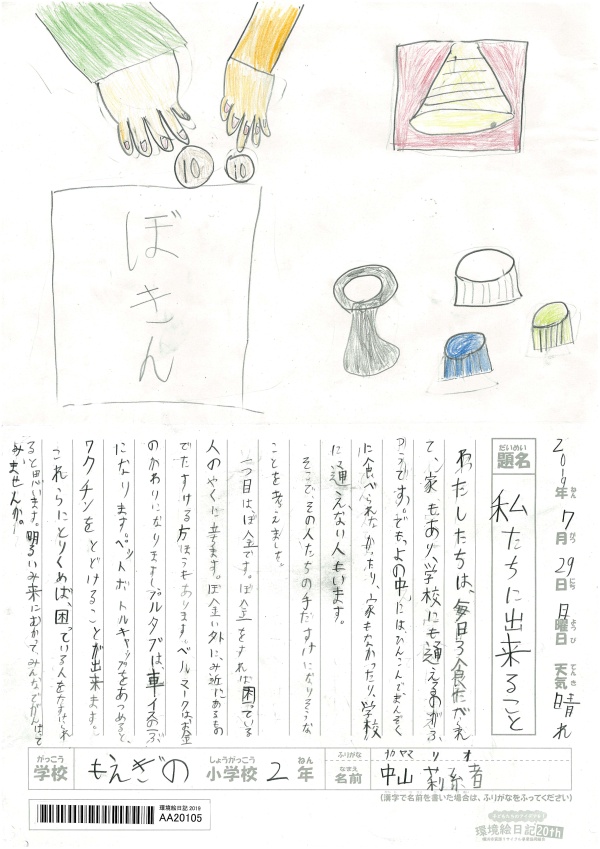 10
10
ぼきん
2019年ねん 7月がつ 29日にち 月曜日ようび 天気てんき 晴れ
だいめい
題名
私たちに出来ること
わたしたちは、毎日3食たべられ
て、家もあり、学校にも通えるのがふ
つうです。でもよの中には、ひんこんでまんぞく
に食べられなかったり、家もなかったり、学校
に通えない人もいます。
そこで、その人たちの手だすけになりそうな
ことを考えました。
一つ目は、ぼ金です。ぼ金をすれば困っている
人のやくに立ちます。ぼ金い外にみ近にあるもの
でたすける方ほうもあります。ベルマークは、お金
のかわりになりますし、プルタブは、車イスの一ぶ
になります。ペットボトルキャップをあつめると、
ワクチンをとどけることが出来ます。
これらにとりくめば、困っている人をたすけられ
ると思います。明るいみ来にむかって、みんなでがんばって
みませんか。
がっこう
学校 もえぎの 小学校しょうがっこう 2年ねん
ふりがな ナカヤマ リオ
なまえ
名前 中山 莉緒
(漢字で名前を書いた場合は、ふりがなをふってください)
環境絵日記 2019
AA20105
環境絵日記 20th